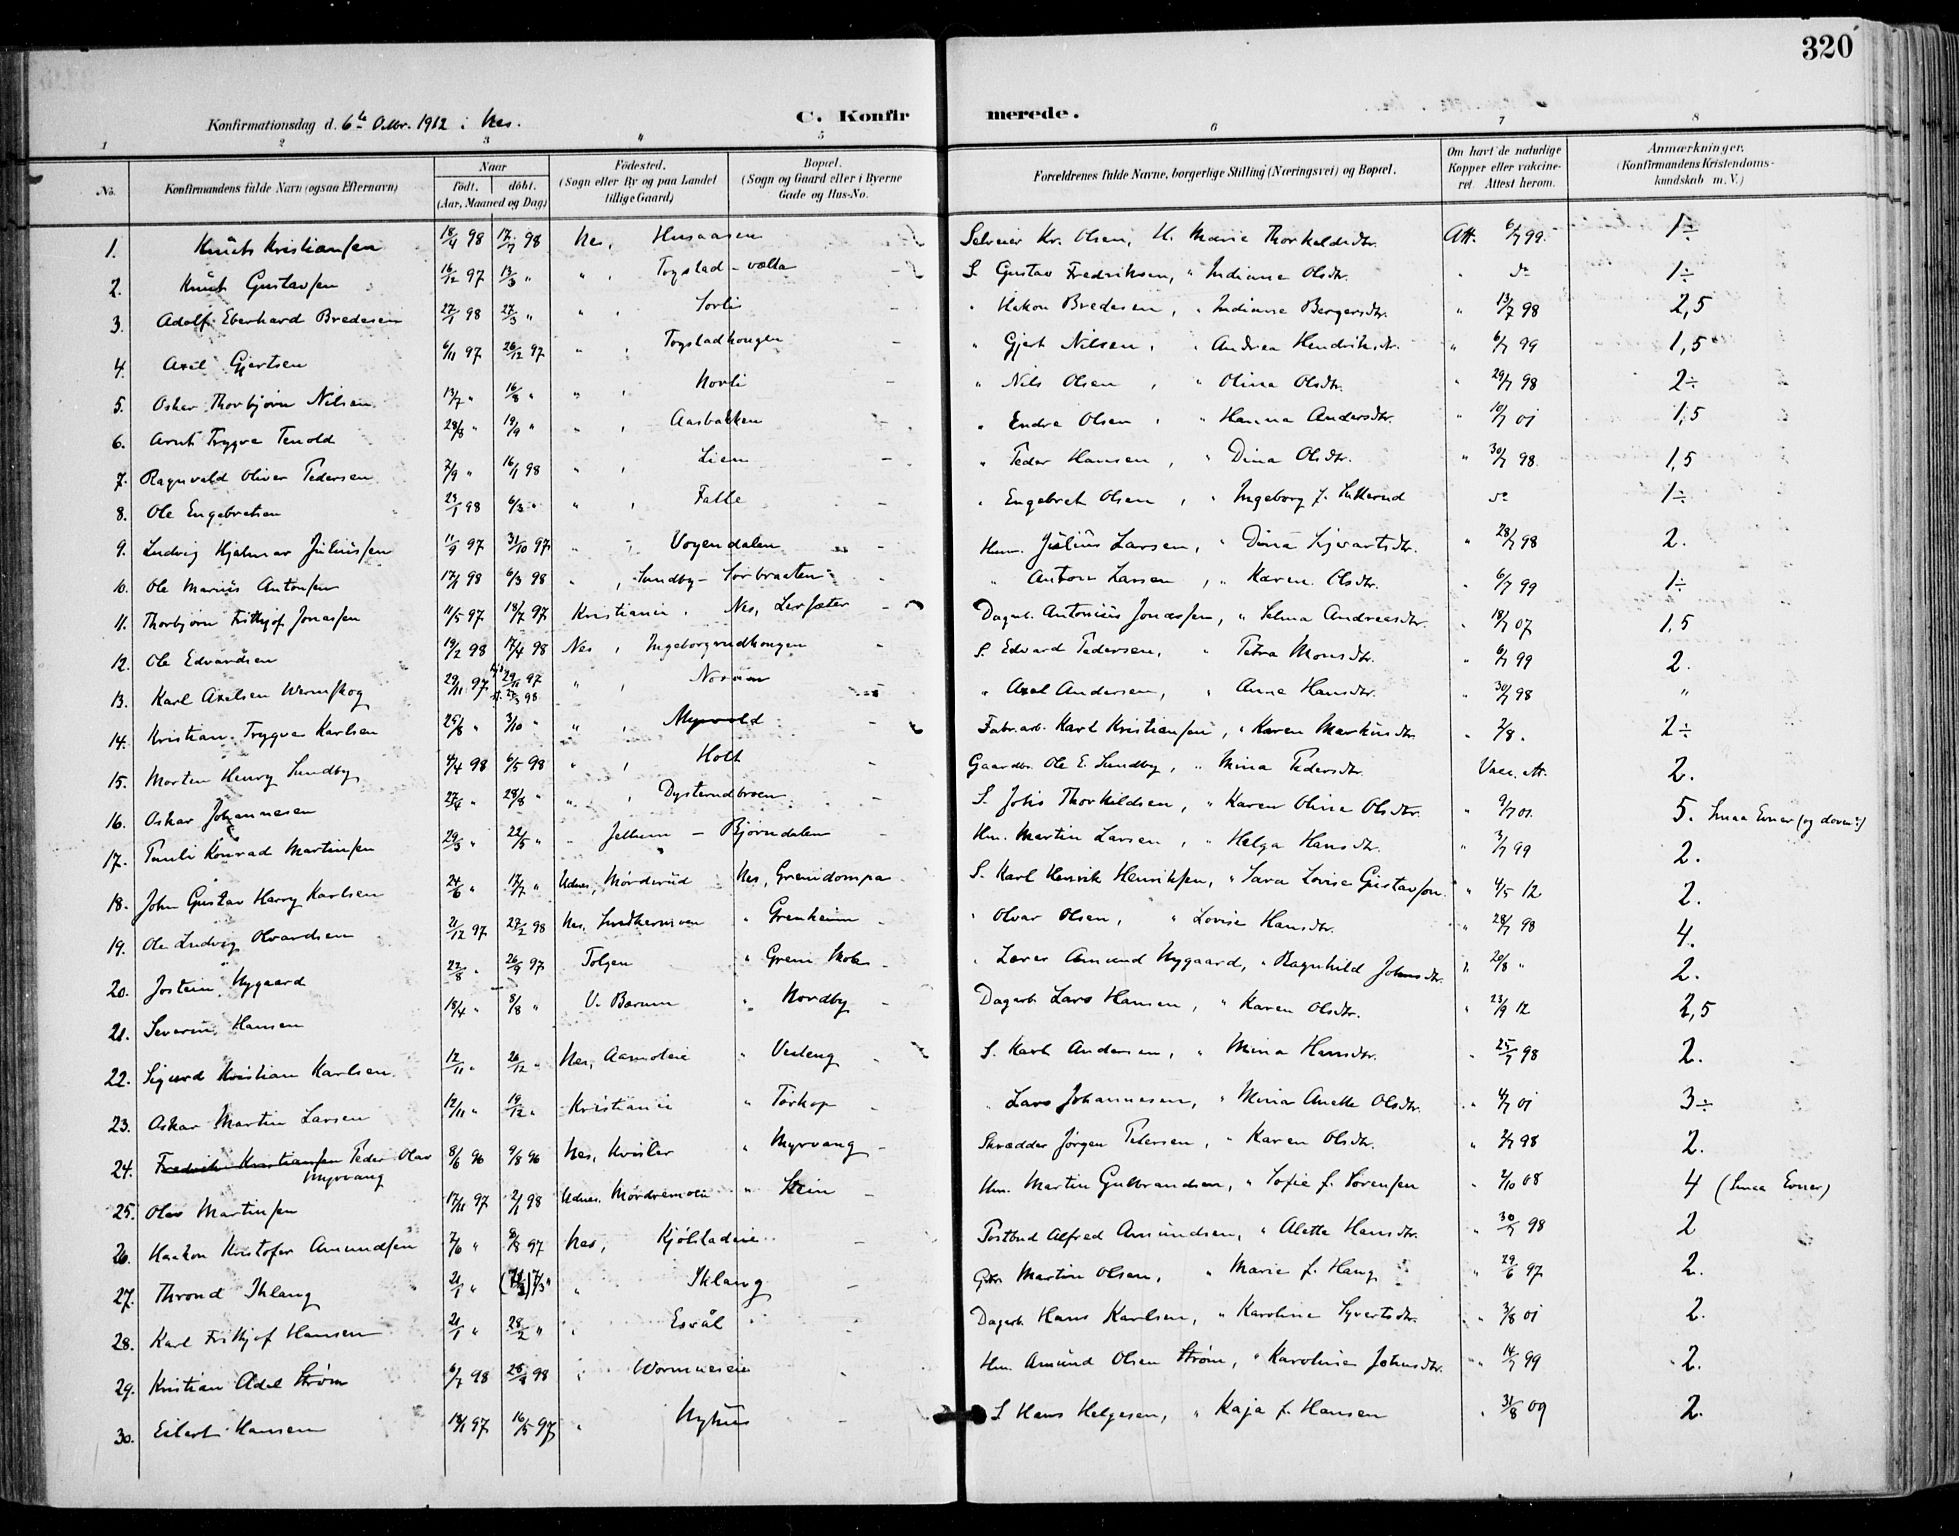 320
Konfirmationsdag d. 6te Octbr. 1912 i Nes.
C. Konfirmerede.
1 2 3 " 5 6 7 8
No. Konfirmandens fulde Navn (ogsaa Efternavn) Naar födt. döbt. (Aar, Maaned og Dag) Födested. (Sogn eller By og paa Landet tillige Gaard) Bopæl. (Sogn og Gaard eller i Byerne Gade og Hus-No. Forældrenes fulde Navne, borgerlige Stilling (Næringsvei) og Bopæl. Om havt de naturlige Kopper eller vakcineret. Attest herom. Anmærkninger. (Konfirmandens Kristendomskundskab m. V.)
1. Knut Kristiansen 18/4 98 17/7 98 Nes, Husaasen Selveier Kr. Olsen, H. Marie Thorkeldsdtr. Att. 6/7 99. 1÷
2. Knut Gustavsen 16/12 97 13/3 " " , Togstad-vælta S. Gustav Fredriksen, " Indiane Olsdtr. " do 1÷
3. Adolf Eberhard Bredesen 27/1 98 27/3 " " , Sorli " Hakon Bredesen, " Indiane Bergersdtr. " 13/7 98 2,5
4. Axel Gjertsen 6/11 97 26/12 97 " , Togstadhougen " Gjert Nilsen, " Andrea Hendriksdtr. " 6/7 99 1,5
5. Oskar Thorbjørn Nilsen 13/7 " 16/8 " " , Norli " Nils Olsen, " Olina Olsdtr. " 29/7 98 2÷
6. Arnt Trygve Tenold 28/8 " 19/9 " " , Aasbakken " Endre Olsen, " Hanna Andersdtr. " 10/7 01 1,5
7. Ragnvald Oliver Pedersen 7/9 " 16/1 98 " , Lien " Peder Hansen, " Dina Olsdtr. " 30/7 98. 1,5
8. Ole Engebretsen 23/1 98 6/3 " " , Falle " Engebret Olsen, " Ingeborg f. Sutterud do 1÷
9. Ludvig Hjalmar Juliussen 11/9 97 31/10 97 " , Voyendalen Hm. Julius Larsen, " Dina Sigvartsdtr. " 28/7 98 2.
10. Ole Marius Antonsen 17/1 98 6/3 98 " , Sundby-Sorbraaten " Anton Larsen, " Karen Olsdtr. " 6/7 99 1÷
11. Thorbjørn Frithjof Jonassen 11/5 97 18/7 97 Kristiania. Nes, Lersæter Dagarb. Antonius Jonassen, " Selma Andreasdtr. " 18/7 07 1,5
12. Ole Edvardsen 19/2 98 17/4 98 Nes, Ingeborgrudhougen S. Edvard Pedersen, " Petra Monsdtr. " 6/7 99 2.
13. Karl Axelsen Wernskog 29/11 97 29/11 97 27/3 98 " , " Axel Andersen, " Anna Hansdtr. " 30/7 98 "
14. Kristian Trygve Karlsen 25/8 " 3/10 " " , Myrvold Fabr.arb. Karl Kristiansen, " Karen Markusdtr " 2/8 " 2÷
15. Morten Henry Sundby 4/4 98 6/5 98 " , Holt Gaardbr. Ole E. Sundby, " Mina Pedersdtr. Vacc. att. 2.
16. Oskar Johannesen 27/4 " 28/8 " " , Dysterudbroen S. Johs Thorkildsen, " Karen Oline Olsdtr. " 9/7 01. 5. Smaa Evner (og doven?)
17. Pauli Konrad Martinsen 29/3 " 22/5 " " Jelhem – Bjørndalen Hm. Martin Larsen, " Helga Hansdtr. " 3/7 99 2.
18. John Gustav Harry Karlsen 24/6 " 17/7 " Udnes, Mørderud Nes, Greindompa S. Karl Henrik Henriksen, " Sara Lovise Gustavson. " 4/5 12 2.
19. Ole Ludvig Olvardsen 21/12 97 27/2 98 Nes, " Greuheim " Olvar Olsen, " Lovise Hansdtr. " 28/7 98 4.
20. Jostein Nygaard 22/8 " 26/9 97 Tolgen " Greni Skole " Lærer Amund Nygaard, " Ragnhild Johnsdtr. " 20/8 " 2.
21. Severin Hansen 18/4 " 8/8 " V. Bærum " Nordby Dagarb. Lars Hansen, " Karen Olsdtr. " 23/9 12 2,5
22. Sigurd Kristian Karlsen 12/11 " 26/12 " Nes, Aamoteie " Vesteng S. Karl Andersen, " Mina Hansdtr. " 25/7 98 2.
23. Oskar Martin Larsen 12/11 " 19/12 " Kristiania " Torkop " Lars Johannesen, " Mina Anette Olsdtr. " 4/7 01 3÷
24. Fredrik Kristiansen Peder Olav Myrvang 8/6 96 9/8 96 Nes, Kvisler " Myrvang Skrædder Jørgen Petersen, " Karen Olsdtr. " 2/7 98 2.
25. Olav Martinsen 17/11 97 2/1 98 Udnes. Mordremoen " Stein Hm. Martin Gulbrandsen, " Sofie f. Sørensen " 2/10 08 4 (Smaa Evner)
26. Haakon Kristofer Amundsen 2/6 " 8/8 97 Nes, Kjølstadeie Postbud Alfred Amundsen, " Alette Hansdtr. " 30/7 98 2
27. Thrond Ihlang 21/1 " 7/3 " " Ihlang Gbr. Martin Olsen, " Marie f. Haug " 29/6 97 2.
28. Karl Frithjof Hansen 21/1 " 28/2 " " Esvål Dagarb. Hans Karlsen, " Karoline Syvertsdtr. " 3/8 01 2.
29. Kristian Adel Strøm 6/7 98 28/8 98 " Wormneseie Hm. Amund Olsen Strøm, " Karoline Johnsdtr. " 14/7 99 2.
30. Eilert Hansen 18/1 97 16/5 97 " Nyhus S Hans Helgesen, " Kaja f. Hansen " 31/8 09 2.